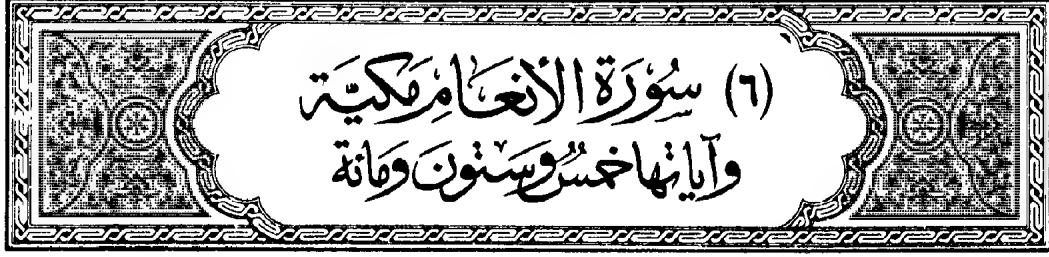 (٦) سُورَة الأنعَامِ مَكيَّة
وآياتها خمسٌ وَستونَ وَمائة